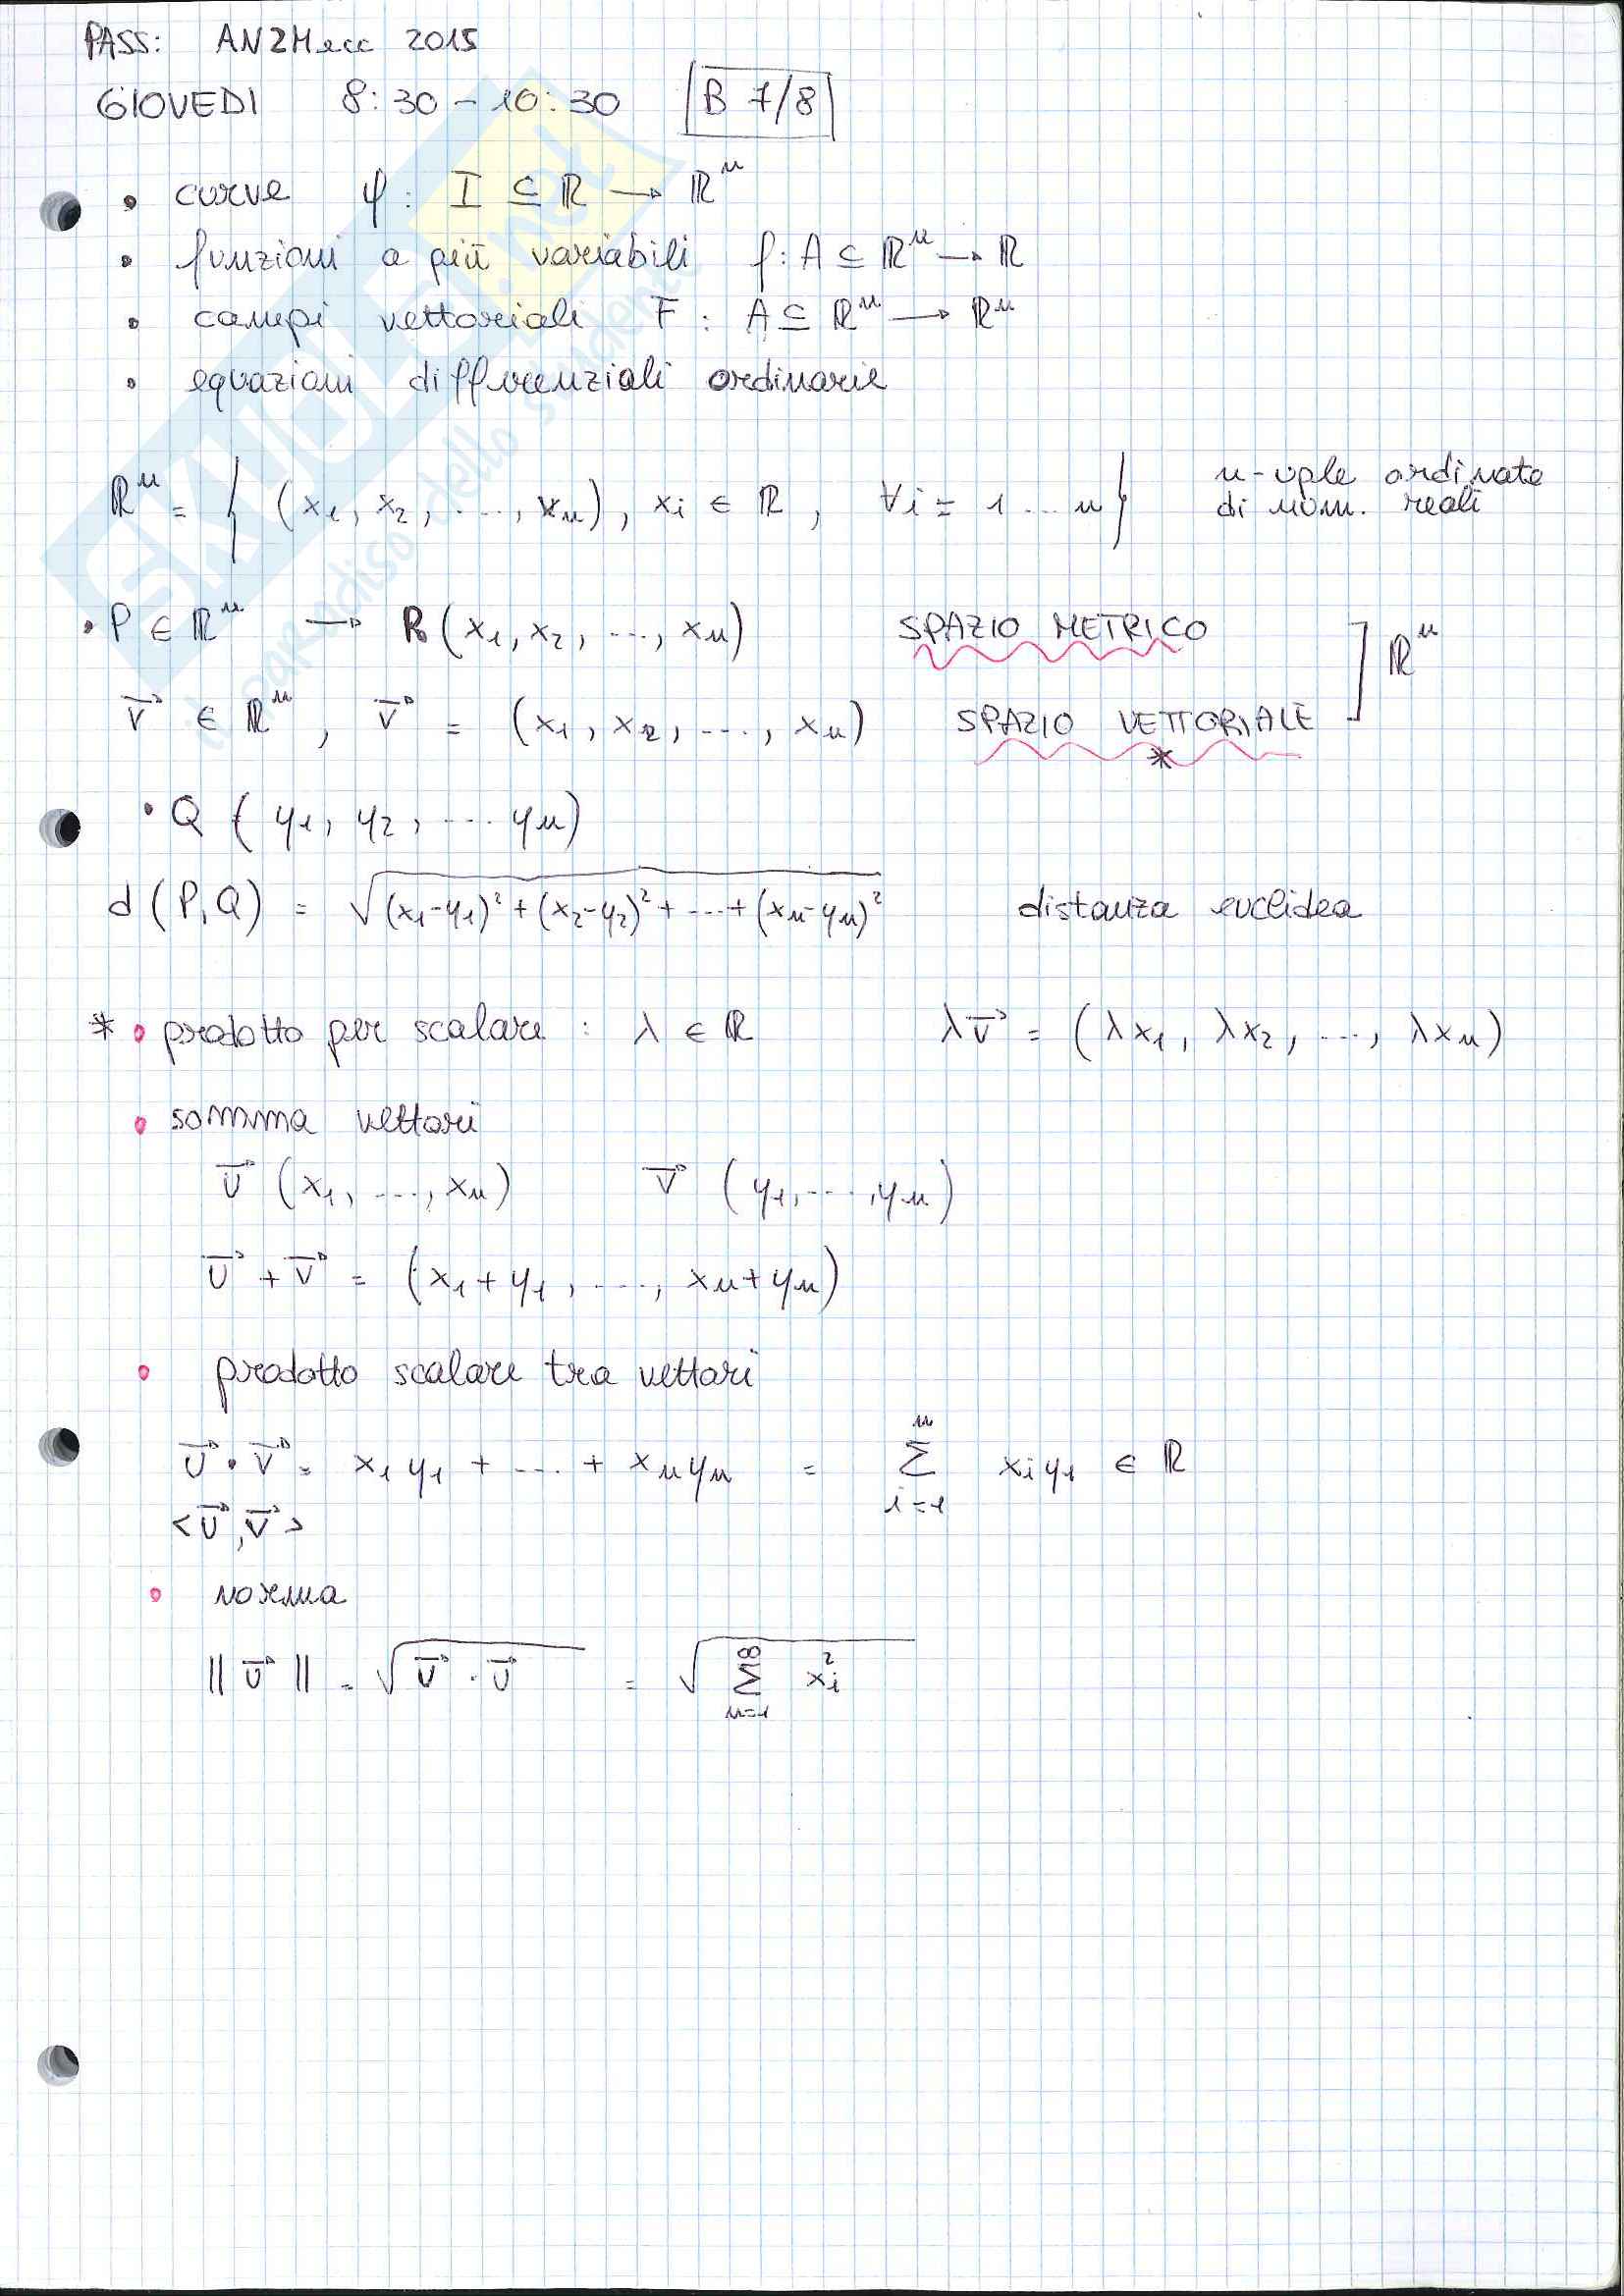 PASS: AN2Mecc 2015
GIOVEDI 8:30 - 10:30 B 7/8
• curve φ: I ⊆ ℝ → ℝⁿ
• funzioni a più variabili f: A ⊆ ℝⁿ → ℝ
• campi vettoriali F: A ⊆ ℝⁿ → ℝⁿ
• equazioni differenziali ordinarie
ℝⁿ = { (x₁, x₂, ...., xₙ), xᵢ ∈ ℝ, ∀i = 1 ... n } n-uple ordinate
di num. reali
• P ∈ ℝⁿ → P(x₁, x₂, ..., xₙ) SPAZIO METRICO
v⃗ ∈ ℝⁿ, v⃗ = (x₁, x₂, ..., xₙ) SPAZIO VETTORIALE ] ℝⁿ
*
• Q (y₁, y₂, ... yₙ)
d(P,Q) = √((x₁-y₁)² + (x₂-y₂)² + ... + (xₙ-yₙ)²) distanza euclidea
* • prodotto per scalare: λ ∈ ℝ λv⃗ = (λx₁, λx₂, ..., λxₙ)
• somma vettori
u⃗ (x₁, ..., xₙ) v⃗ (y₁, ..., yₙ)
u⃗ + v⃗ = (x₁+y₁, ..., xₙ+yₙ)
• prodotto scalare tra vettori
u⃗ • v⃗ = x₁y₁ + ... + xₙyₙ = Σⁿᵢ₌₁ xᵢy₁ ∈ ℝ
<u⃗,v⃗>
• norma
||u⃗|| = √(u⃗ · u⃗) = √(Σ^∞ₙ₌₁ xᵢ²)
SKUOLA.net
il paradiso dello studente